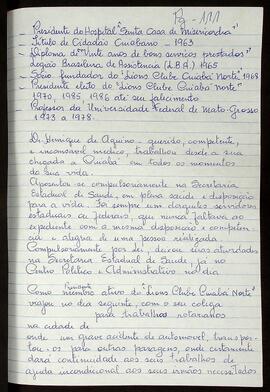 Pg - 111
Presidente do Hospital "Santa Casa de Misericordia"
Titulo de Cidadão Cuiabano - 1963
Diploma de "Vinte anos de bons serviços prestados"
Legião Brasileira de Assistência (L.B.A.) 1965
Sócio fundador do "Lions Clube Cuiabá Norte" 1968
Presidente eleito do "Lions Clube Cuiabá Norte"
1970, 1985, 1986 até seu falecimento
Professor da Universidade Federal de Mato-Grosso
1973 a 1978.
Dr. Henrique de Aquino - querido, competente,
e incansável médico, trabalhou desde a sua
chegada a Cuiabá em todos os momentos
da sua vida.
Aposentou-se compulsoriamente na Secretaria
Estadual de Saúde, em plena saúde e disposição
para a vida. Foi sempre um daqueles servidores
estaduais e federais, que nunca faltava ao
expediente com a mesma disposição e competên
cia e alegria de uma pessoa realizada.
Compulsoriamente por lei, deixou suas atividades
na Secretaria Estadual de Saúde, já no
Centro Político e Administrativo no dia
Como Presidente membro ativo do "Lions Clube Cuiabá Norte"
viajou no dia seguinte, com o seu colega
para trabalhos rotarianos
na cidade de
onde um grave acidente de automóvel, transpor
tou-os para outras paragens, onde certamente
dará continuidade aos seus trabalhos de
ajuda incondicional aos seus irmãos necessitados